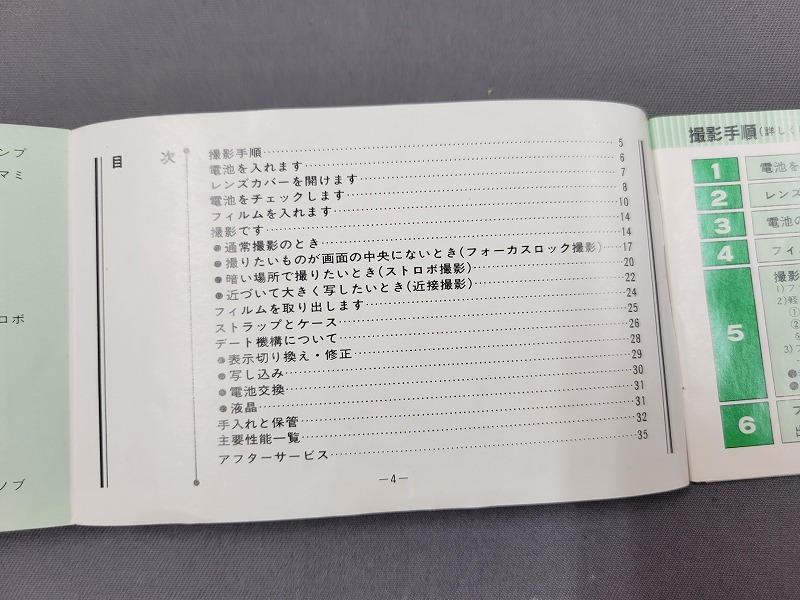 ンプ
マミ
ロボ
ノブ
目 次
撮影手順 5
電池を入れます 6
レンズカバーを開けます 7
電池をチェックします 8
フィルムを入れます 10
撮影です 14
●通常撮影のとき 14
●撮りたいものが画面の中央にないとき(フォーカスロック撮影) 17
●暗い場所で撮りたいとき(ストロボ撮影) 20
●近づいて大きく写したいとき(近接撮影) 22
フィルムを取り出します 24
ストラップとケース 25
デート機構について 26
●表示切り換え・修正 28
●写し込み 29
●電池交換 30
●液晶 31
手入れと保管 31
主要性能一覧 32
アフターサービス 35
—4—
撮影手順(詳しく
1 電池を
2 レンズ
3 電池の
4 フィ
5 撮影
1)フ
2)軽
①
②
を
3)
6 フ
出